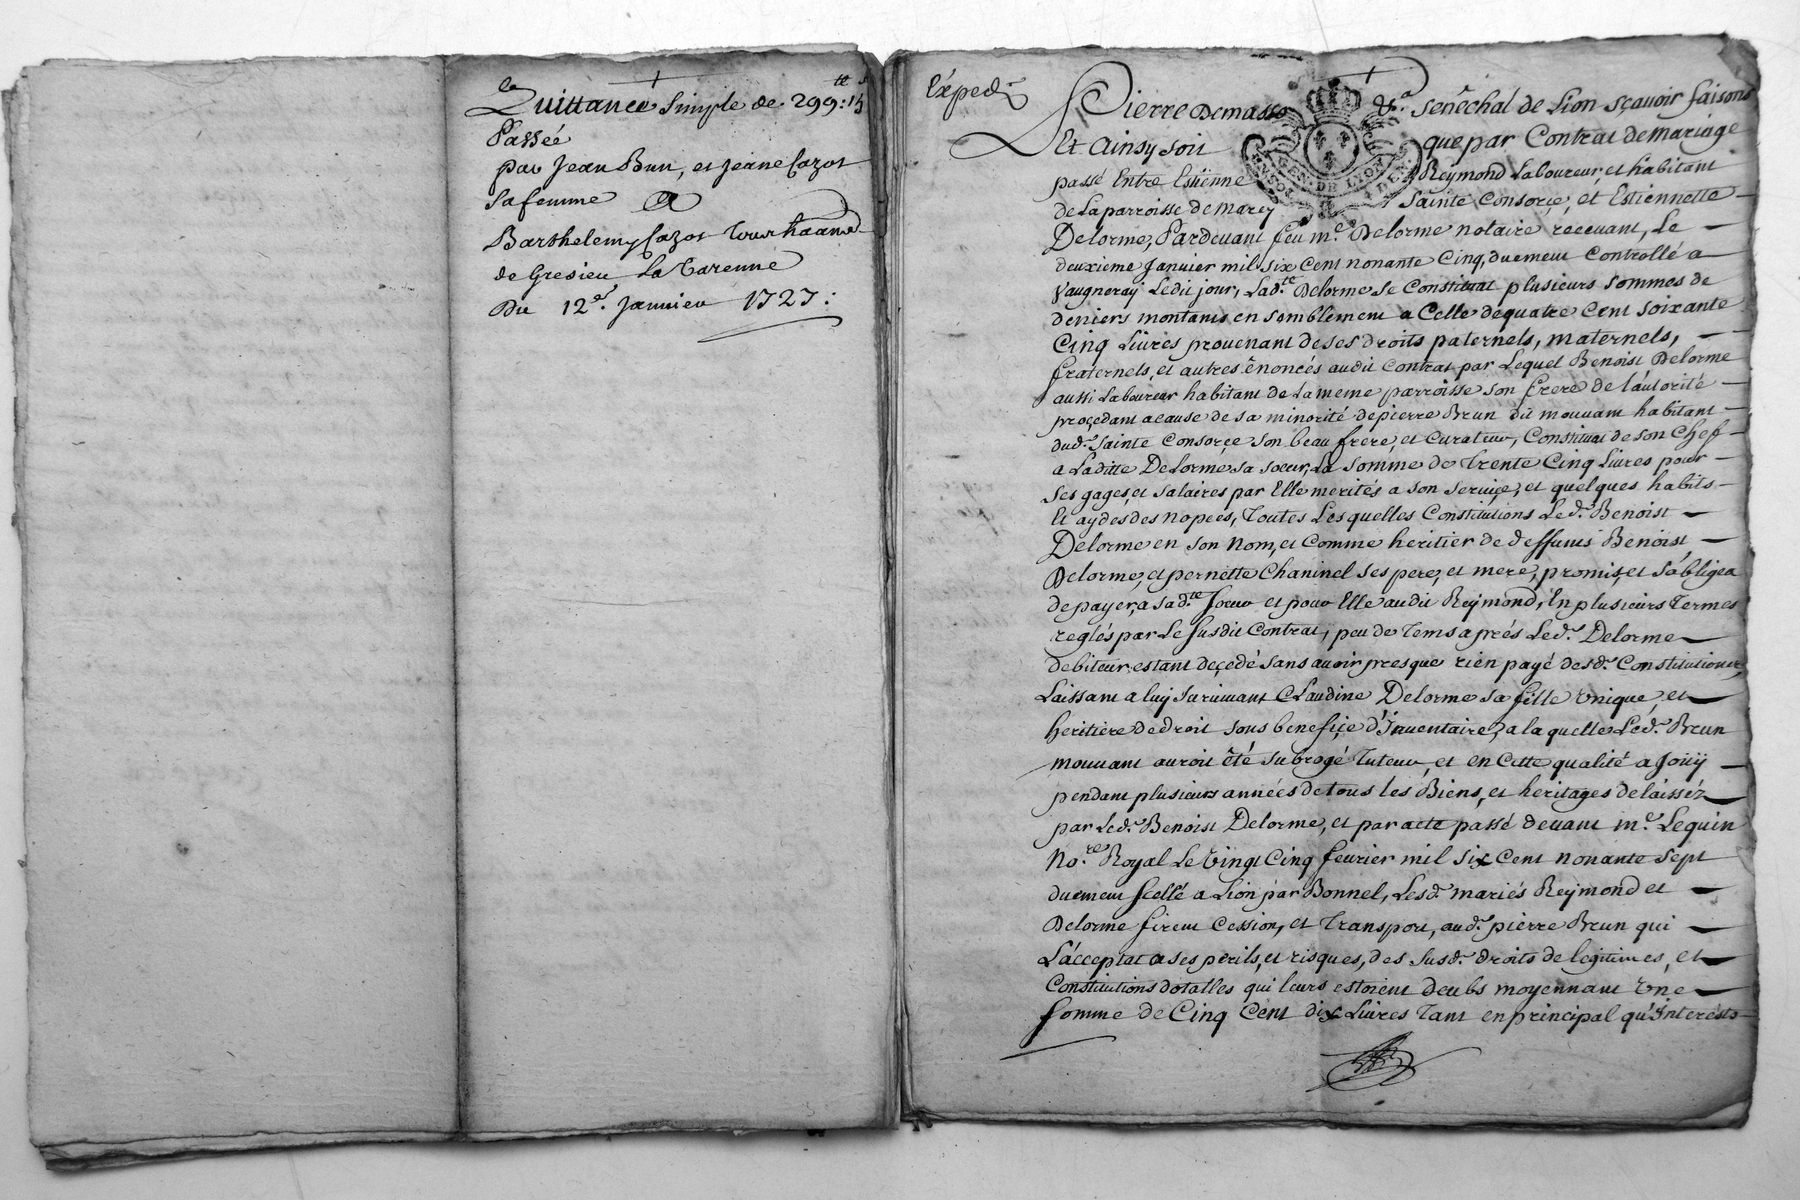 Quittance Simple de 299:tt 15 s
Passée
par Jean Brun, et Jeane Cazot
Sa femme A
Barthelemy Cazot
de Gresieu La Varenne
Du 12e. Janvieu 1727:
Expedr.
Pierre Demasso &r. senêchal de Lion sçavoir faisons
Et Ainsy soit que par Contrat de Mariage
passé Entre Estienne Reymond Laboureur, et habitant
de La parroisse de Marcy Sainte Consorçe, et Estiennette
Delorme, Pardevant feu me. Delorme notaire recevant, Le
deuxieme Janvier mil six Cent nonante Cinq, duement Controllé a
Vaugneray Ledit jour, Lad.te Delorme se Constituat plusieurs sommes de
deniers montants ensemblement a Celle de quatre Cent soixante
Cinq Livres provenant de ses droits paternels, maternels,
fraternels, et autres ênoncés audit Contrat par Lequel Benoist Delorme
aussi Laboureur habitant de La meme parroisse son frere de l'autorité
proçedant acause de sa minorité de pierre Brun dit mouvant habitant
dud. Sainte Consorçe son beau frere, et Curateur, Constituat de son Chef
a Laditte Delorme sa soeur, La somme de Trente Cinq Livres pour
ses gages, et salaires par Elle merités a son serviçe, et quelques habits
Et aydes des nopces, Toutes Lesquelles Constitutions Led. Benoist
Delorme en son Nom, et Comme heritier de deffunts Benoist
Delorme, et pernette Chaninel ses pere, et mere, promis, et s'obligea
de payer, a sad.te soeur et pour Elle audit Reymond, En plusieurs Termes
reglés par Le susdit Contrat, peu de Tems aprés Led. Delorme
debiteur estant deçedé sans avoir presque rien payé desd. Constitutions,
Laissant a luy survivant Claudine Delorme sa fille Unique, et
heritiere de droit sous benefiçe d'Inventaire, a la quelle Led. Brun
mouvant auroit êté subrogé Tuteur, et en Cette qualité a Joüy
pendant plusieurs années de tous les Biens, et heritages delaissez
par Led. Benoist Delorme, et par acte passé devant me. Lequin
No.re Royal Le Vingt Cinq fevrier mil six Cent nonante sept
duement scellé a Lion par Bonnel, Lesd. mariés Reymond et
Delorme firent Cession, et Transport, aud. pierre Brun qui
L'acceptat a ses périls, et risques, des susd. droits de legitimes, et
Constitutions dotalles qui leurs estoient deubs moyennant Une
somme de Cinq Cent dix Livres Tant en principal qu'Interests